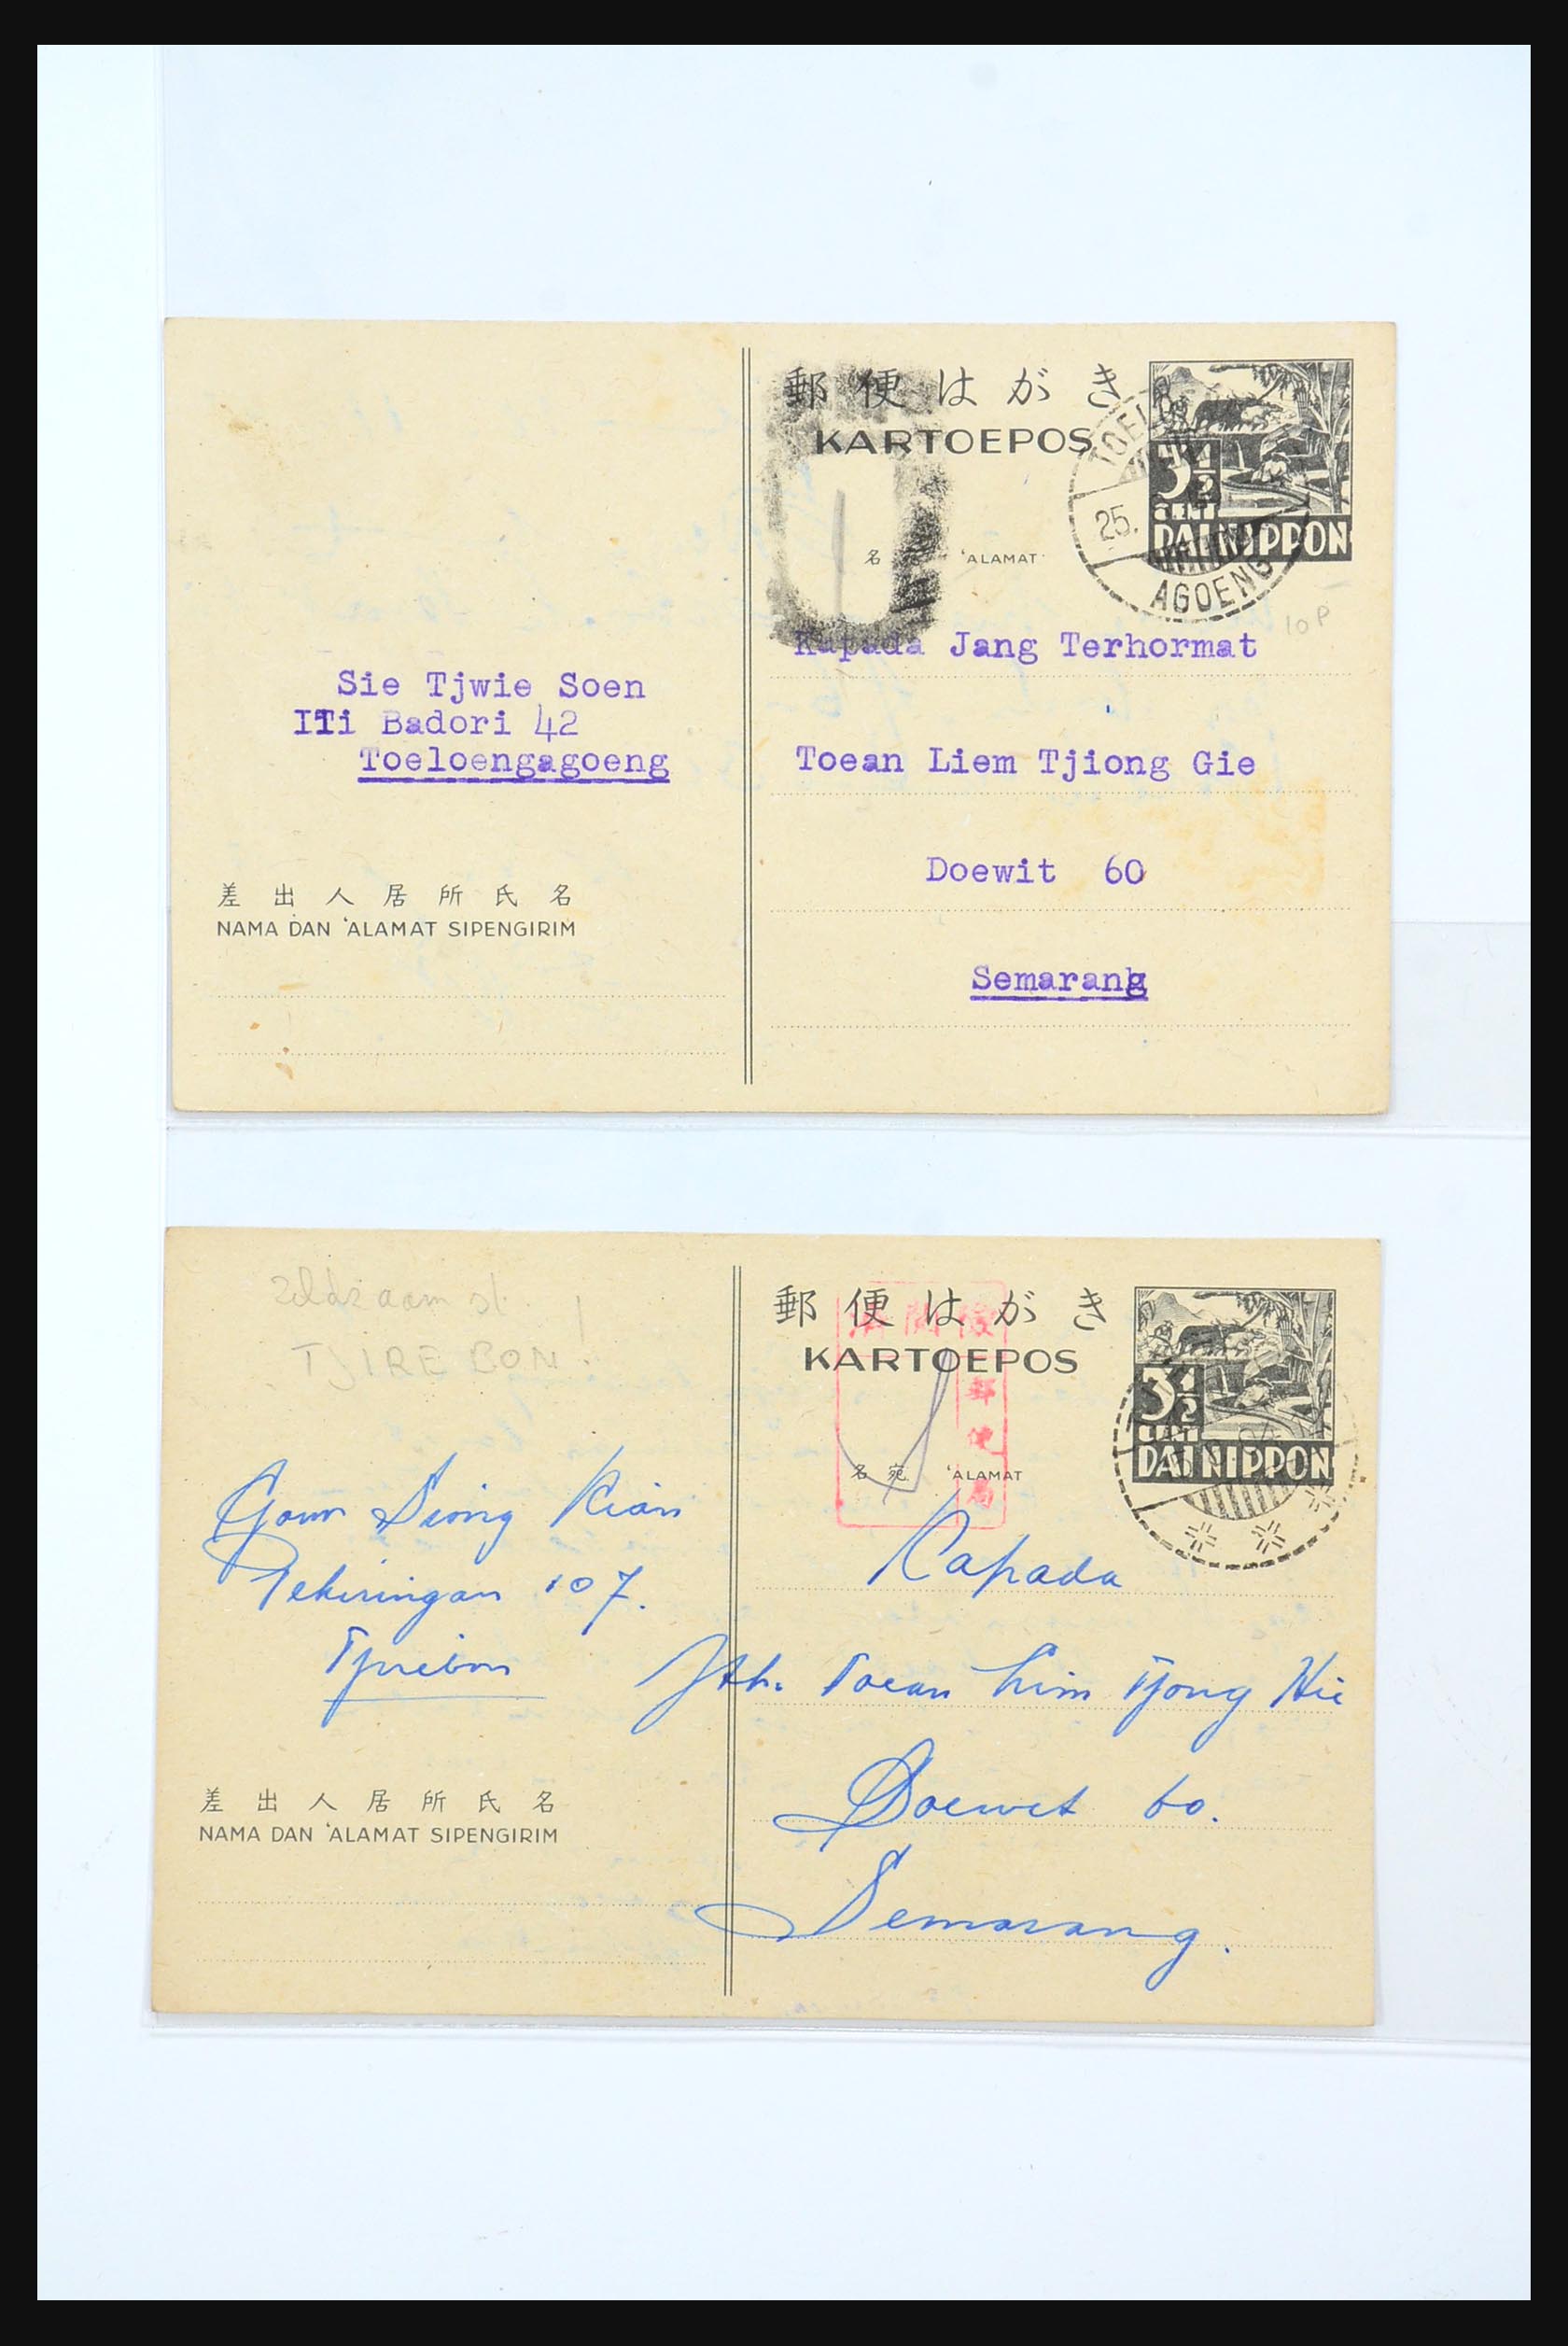 郵便はがき
KARTOEPOS
3½
CENT
DAI NIPPON
TOEL
25.
AGOENG
名
'ALAMAT
10 P
Kapada Jang Terhormat
Toean Liem Tjiong Gie
Doewit 60
Semarang
Sie Tjwie Soen
ITi Badori 42
Toeloengagoeng
差出人居所氏名
NAMA DAN 'ALAMAT SIPENGIRIM
zeldzaam st. !
TJIREBON.
郵便はがき
KARTOEPOS
3½
CENT
DAI NIPPON
郵便局
名宛
'ALAMAT
Kapada
Jth. Toean Lim Tjong Hie
Doewit 60.
Semarang.
Seong Kian
Pekiringan 107.
Tjirebon
差出人居所氏名
NAMA DAN 'ALAMAT SIPENGIRIM